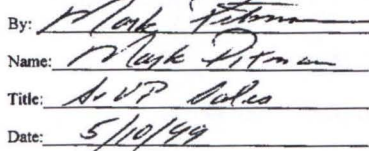 By: Mark Pitman
Name: Mark Pitman
Title: Sr VP Sales
Date: 5/10/99